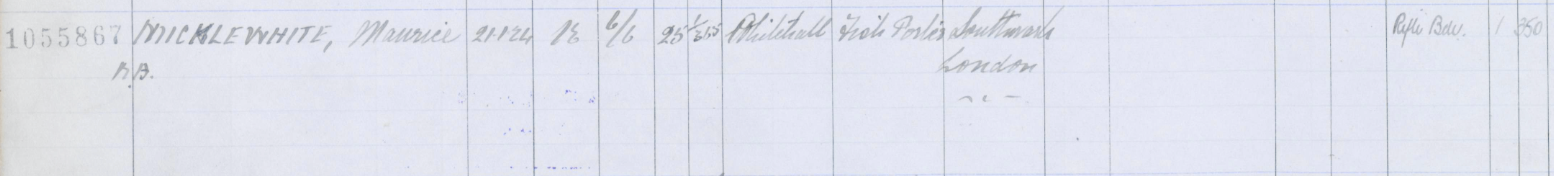 1055867 MICKLEWHITE, Maurice 21124 6/6 25 1/2 35 Whitehall Fish Porter Southwark Rifle Bde. 1 350
R.B. London